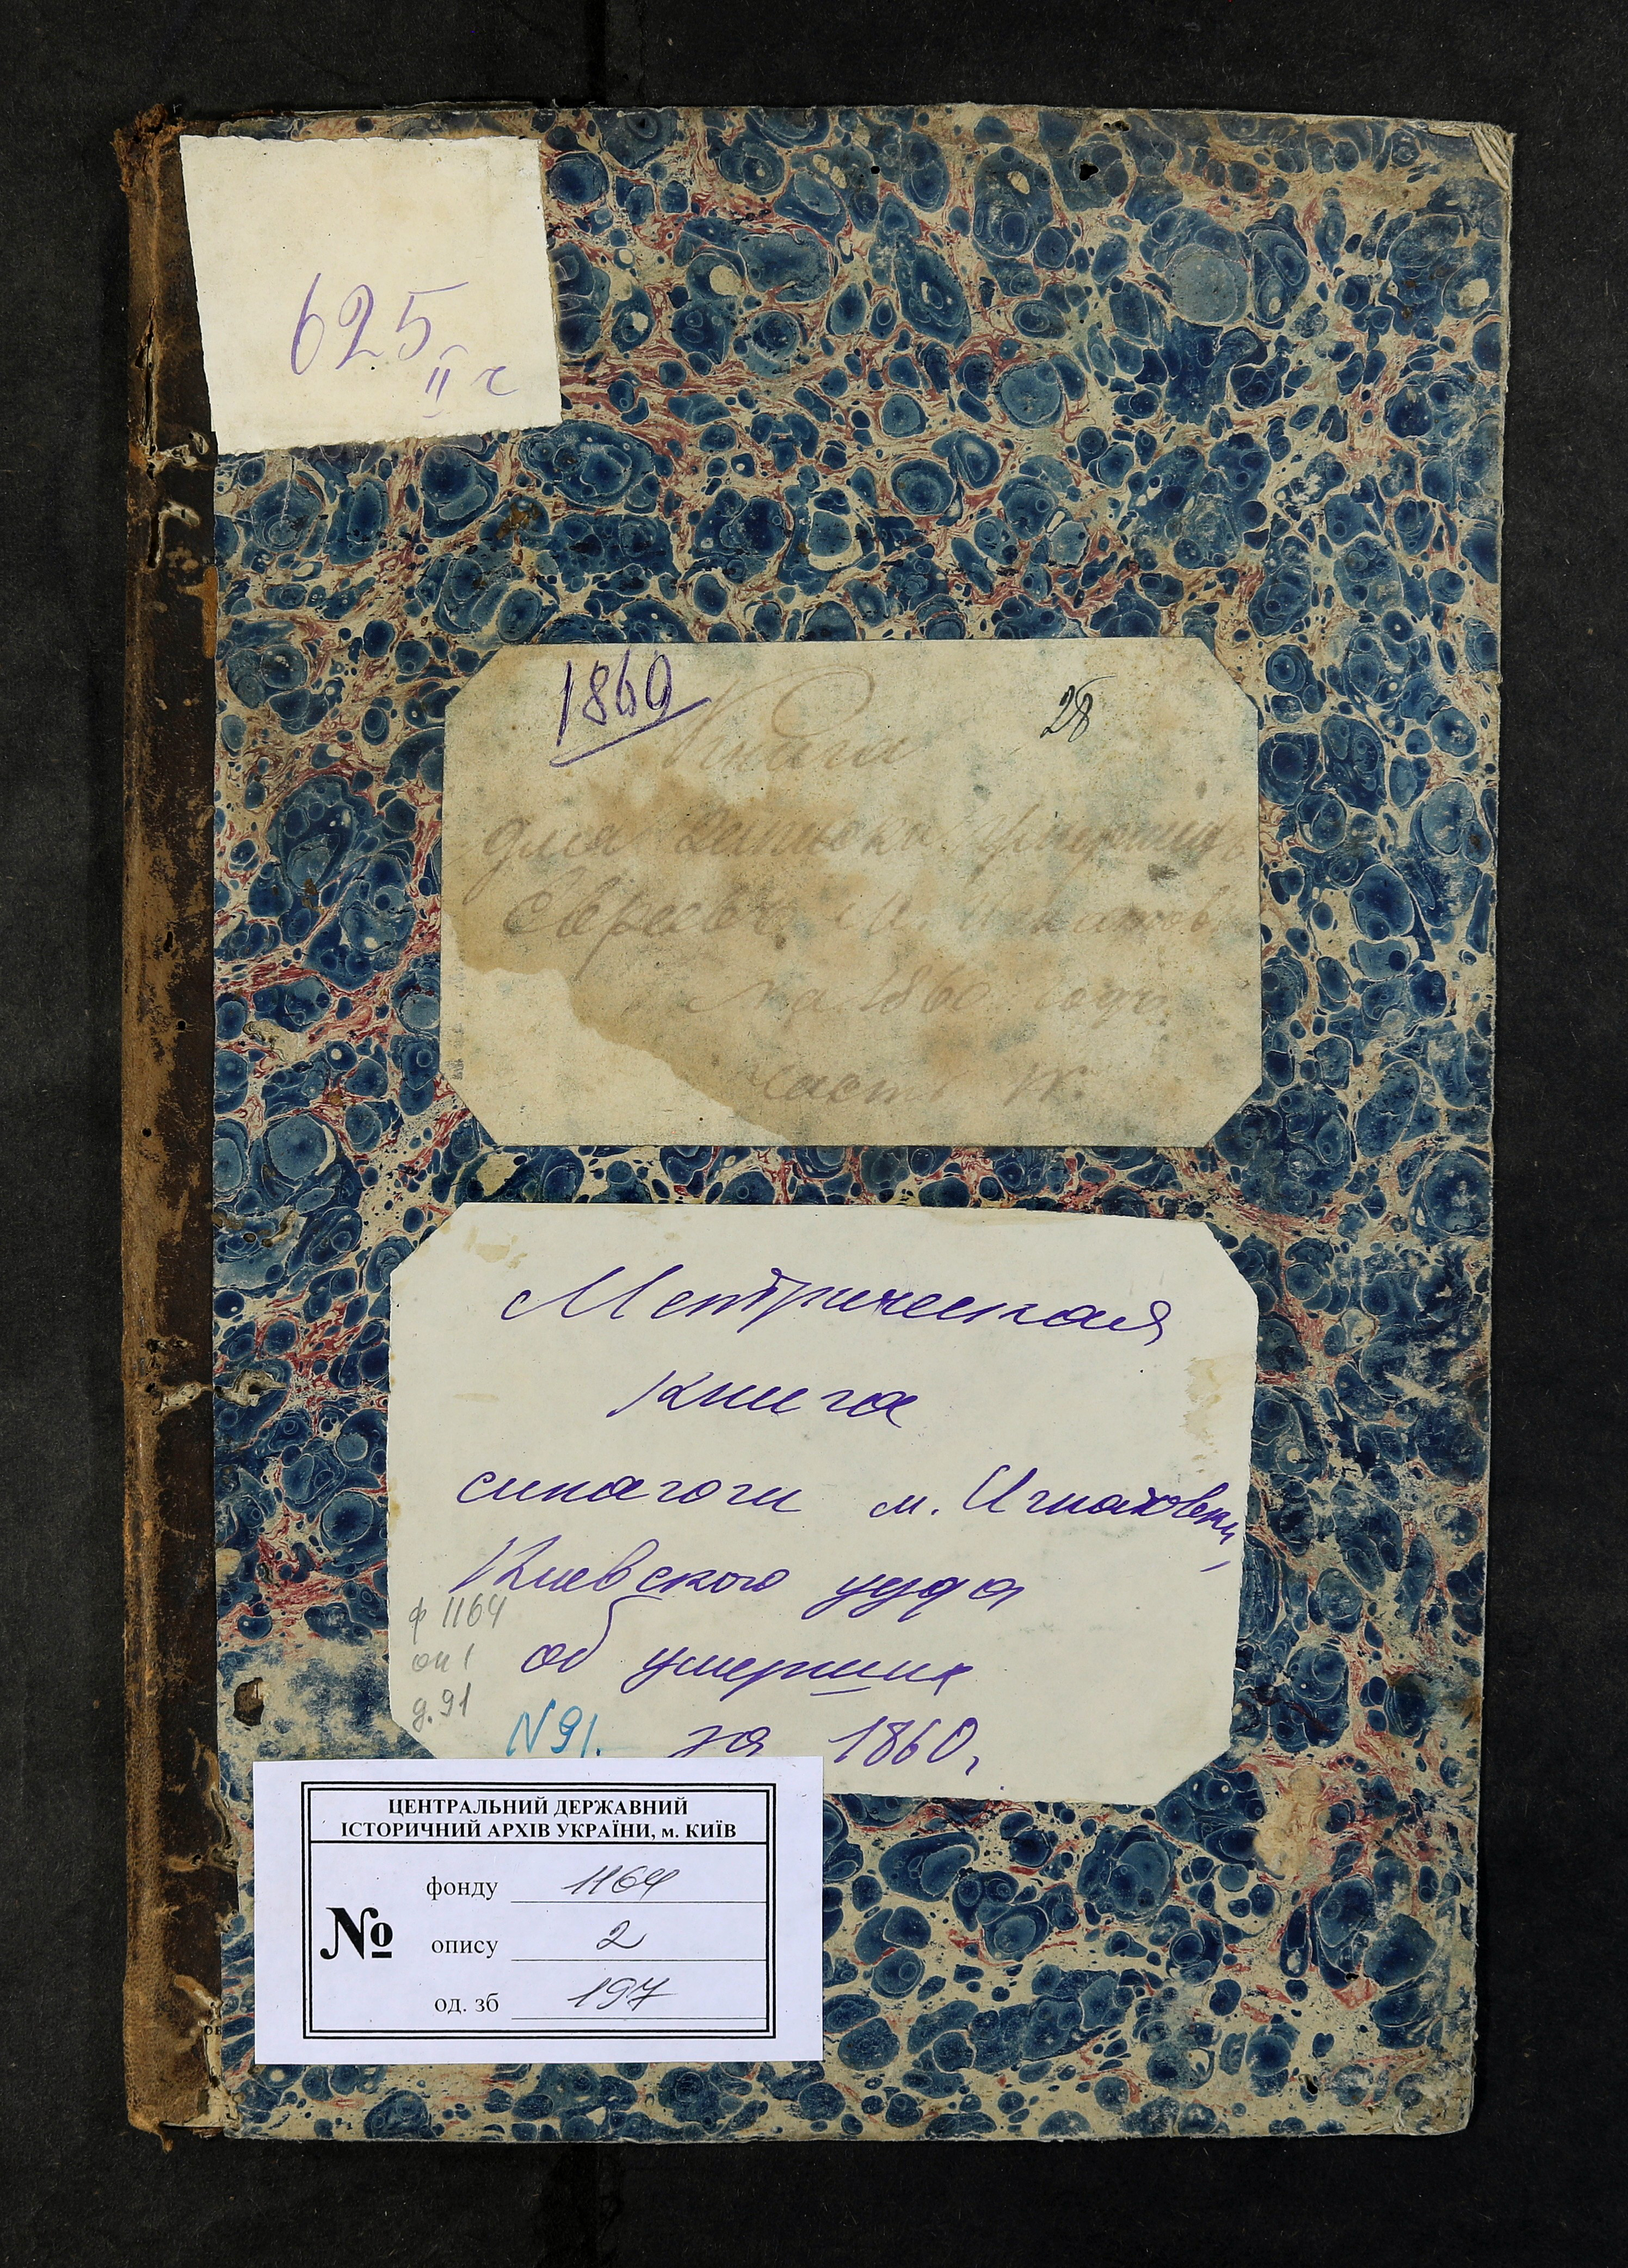 625
II ч
1860
28
Книга
для записки умершихъ
Евреевъ м. Игнатов
на 1860 годъ
часть IV.
Метрическая
книга
синагоги м. Игнатовки,
Киевского уезда
ф 1164
оп 1
д. 91
об умерших
N 91. за 1860,
ЦЕНТРАЛЬНИЙ ДЕРЖАВНИЙ
ІСТОРИЧНИЙ АРХІВ УКРАЇНИ, м. КИЇВ
№
фонду 1164
опису 2
од. зб 197